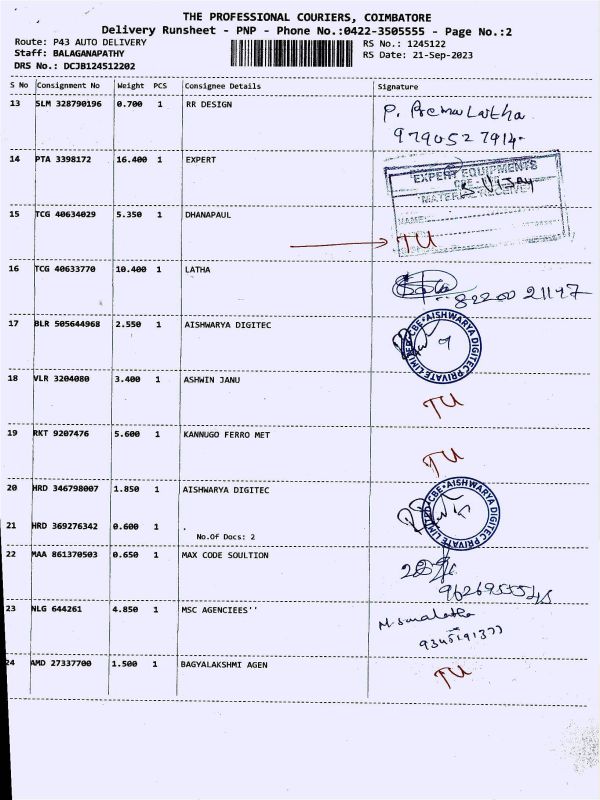 THE PROFESSIONAL COURIERS, COIMBATORE
Delivery Runsheet - PNP - Phone No.:0422-3505555 - Page No.:2
Route: P43 AUTO DELIVERY
Staff: BALAGANAPATHY
DRS No.: DCJB124512202
RS No.: 1245122
RS Date: 21-Sep-2023
S No Consignment No Weight PCS Consignee Details Signature
13 SLM 328790196 0.700 1 RR DESIGN P. Premalatha
9790527914
14 PTA 3398172 16.400 1 EXPERT
EXPERT EQUIPMENTS
CBE
S. VIJAY
MATERIAL RECEIVED
NAME:
15 TCG 40634029 5.350 1 DHANAPAUL TU
16 TCG 40633770 10.400 1 LATHA
17 BLR 505644968 2.550 1 AISHWARYA DIGITEC
AISHWARYA DIGITEC PRIVATE LIMITED CBE
18 VLR 3204080 3.400 1 ASHWIN JANU TU
19 RKT 9207476 5.600 1 KANNUGO FERRO MET TU
20 HRD 346798007 1.850 1 AISHWARYA DIGITEC
AISHWARYA DIGITEC PRIVATE LIMITED CBE
21 HRD 369276342 0.600 1 .
No.Of Docs: 2
22 MAA 861370503 0.650 1 MAX CODE SOULTION
23 NLG 644261 4.850 1 MSC AGENCIEES''
9345191377
24 AMD 27337700 1.500 1 BAGYALAKSHMI AGEN TU